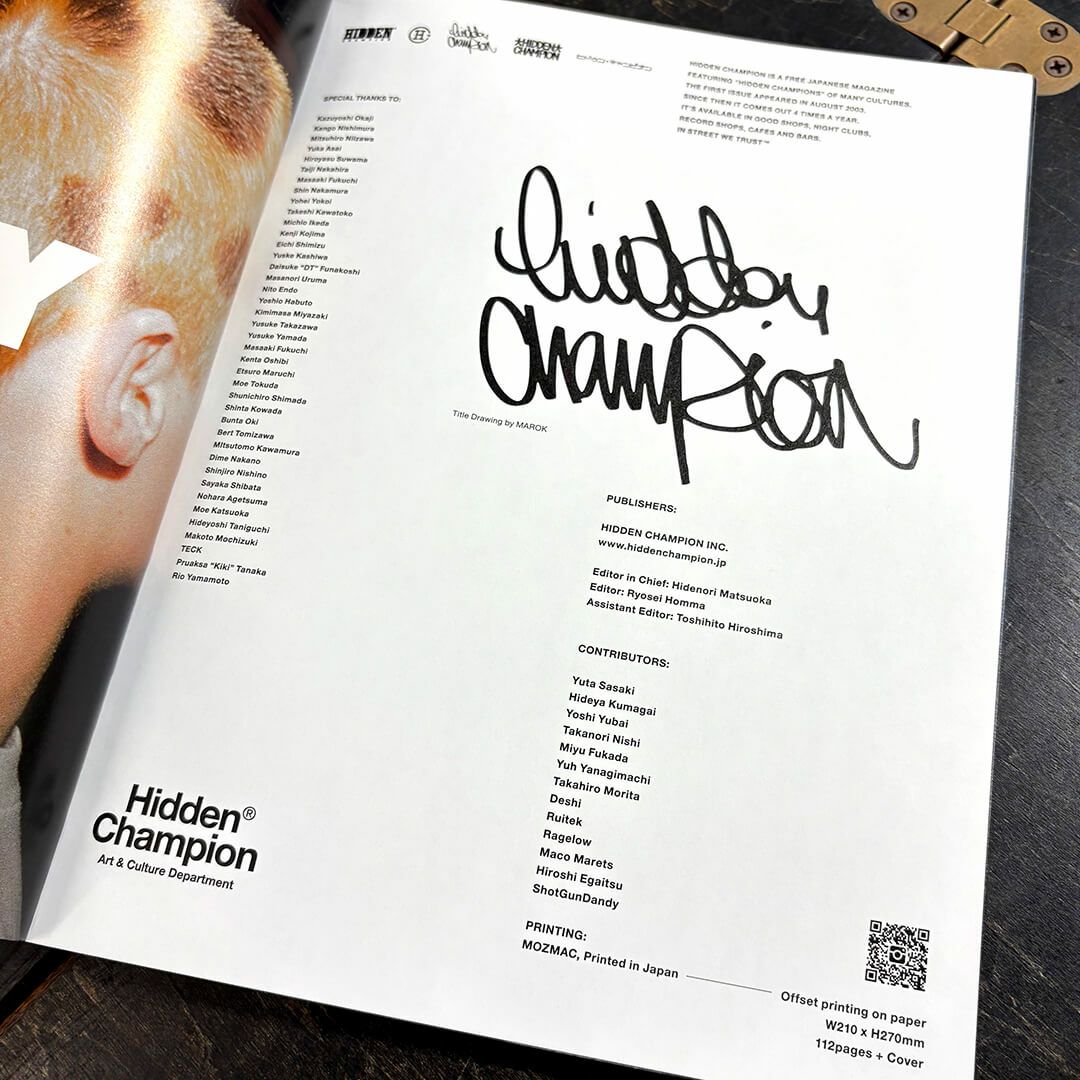 Y
HIDDEN
CHAMPION
H
hidden
champion
HIDDEN
CHAMPION
HIDDEN CHAMPION IS A FREE JAPANESE MAGAZINE
FEATURING "HIDDEN CHAMPIONS" OF MANY CULTURES.
THE FIRST ISSUE APPEARED IN AUGUST 2003.
SINCE THEN IT COMES OUT 4 TIMES A YEAR.
IT'S AVAILABLE IN GOOD SHOPS, NIGHT CLUBS,
RECORD SHOPS, CAFES AND BARS.
IN STREET WE TRUST™
SPECIAL THANKS TO:
Kazuyoshi Okaji
Kengo Nishimura
Mitsuhiro Niizawa
Yuka Asai
Hiroyasu Suwama
Taiji Nakahira
Masaaki Fukuchi
Shin Nakamura
Yohei Yokoi
Takeshi Kawatoko
Michio Ikeda
Kenji Kojima
Eichi Shimizu
Yuske Kashiwa
Daisuke "DT" Funakoshi
Masanori Uruma
Nito Endo
Yoshio Habuto
Kimimasa Miyazaki
Yusuke Takazawa
Yusuke Yamada
Masaaki Fukuchi
Kenta Oshibi
Etsuro Maruchi
Moe Tokuda
Shunichiro Shimada
Shinta Kowada
Bunta Oki
Bert Tomizawa
MItsutomo Kawamura
Dime Nakano
Shinjiro Nishino
Sayaka Shibata
Nohara Agetsuma
Moe Katsuoka
Hideyoshi Taniguchi
Makoto Mochizuki
TECK
Pruaksa "Kiki" Tanaka
Rio Yamamoto
hidden
Champion
Title Drawing by MAROK
PUBLISHERS:
HIDDEN CHAMPION INC.
www.hiddenchampion.jp
Editor in Chief: Hidenori Matsuoka
Editor: Ryosei Homma
Assistant Editor: Toshihito Hiroshima
CONTRIBUTORS:
Yuta Sasaki
Hideya Kumagai
Yoshi Yubai
Takanori Nishi
Miyu Fukada
Yuh Yanagimachi
Takahiro Morita
Deshi
Ruitek
Ragelow
Maco Marets
Hiroshi Egaitsu
ShotGunDandy
PRINTING:
MOZMAC, Printed in Japan
Offset printing on paper
W210 x H270mm
112pages + Cover
Hidden®
Champion
Art & Culture Department